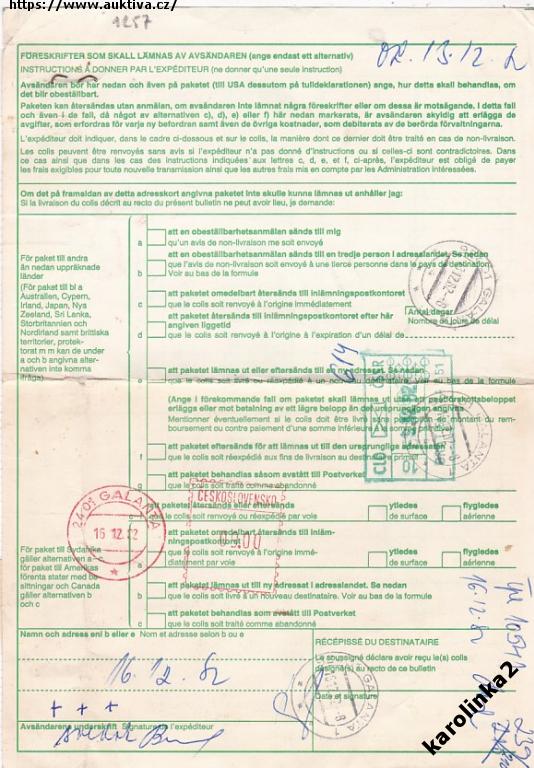 https://www.auktiva.cz/
1257
OZ. 13.12.82
FÖRESKRIFTER SOM SKALL LÄMNAS AV AVSÄNDAREN (ange endast ett alternativ)
INSTRUCTIONS À DONNER PAR L'EXPÉDITEUR (ne donner qu'une seule instruction)
Avsändaren bör här nedan och även på paketet (till USA dessutom på tulldeklarationen) ange, hur detta skall behandlas, om
det blir obeställbart.
Paketen kan återsändas utan anmälan, om avsändaren inte lämnat några föreskrifter eller om dessa är motsägande. I detta fall
och även i de fall, då något av alternativen c), d), e) eller f) här nedan markerats, är avsändaren skyldig att erlägga de
avgifter, som erfordras för varje ny befordran samt även de övriga kostnader, som debiterats av de berörda förvaltningarna.
L'expéditeur doit indiquer, dans le cadre ci-dessous et sur le colis, la manière dont ce dernier doit être traité en cas de non-livraison.
Les colis peuvent être renvoyés sans avis si l'expéditeur n'a pas donné d'instructions ou si celles-ci sont contradictoires. Dans
ce cas ainsi que dans les cas où les instructions indiquées aux lettres c, d, e, et f, ci-après, l'expéditeur est obligé de payer
les frais exigibles pour toute nouvelle transmission ainsi que les autres frais mis en compte par les Administration intéressées.
Om det på framsidan av detta adresskort angivna paketet inte skulle kunna lämnas ut anhåller jag:
Si la livraison du colis décrit au recto du présent bulletin ne peut avoir lieu, je demande:
För paket till andra
än nedan uppräknade
länder
(För paket till bl a
Australien, Cypern,
Irland, Japan, Nya
Zeeland, Sri Lanka,
Storbritannien och
Nordirland samt brittiska
territorier, protek-
torat m m kan de under
a och b angivna alter-
nativen inte komma
ifråga)
a
att en obeställbarhetsanmälan sänds till mig
qu'un avis de non-livraison me soit envoyé
b
att en obeställbarhetsanmälan sänds till en tredje person i adresslandet. Se nedan
que l'avis de non-livraison soit envoyé à une tierce personne dans le pays de destination
Voir au bas de la formule
c
att paketet omedelbart återsänds till inlämningspostkontoret
que le colis soit renvoyé à l'origine immédiatement
d
att paketet återsänds till inlämningspostkontoret efter här
angiven liggetid
que le colis soit renvoyé à l'origine à l'expiration d'un délai de
Antal dagar
Nombre de jours de délai
e
att paketet lämnas ut eller eftersänds till en ny adressat. Se nedan
que le colis soit livré ou réexpédié à un nouveau destinataire. Voir au bas de la formule
f
att paketet eftersänds för att lämnas ut till den ursprungliga adressaten
que le colis soit réexpédié aux fins de livraison au destinataire primitif
g
att paketet behandlas såsom avstått till Postverket
que le colis soit traité comme abandonné
614
ČSSR
CLO
10
51
GALANTA 1
ČESKOSLOVENSKO
2401 GALANTA
16.12.82
För paket till Sydafrika
gäller alternativen a–c
För paket till Amerikas
förenta stater med be-
sittningar och Canada
gäller alternativen a, b
och c
a
att paketet återsänds eller eftersänds
que le colis soit renvoyé ou réexpédié par voie
ytledes
de surface
flygledes
aérienne
att paketet omedelbart återsänds till inläm-
ningspostkontoret
que le colis soit renvoyé à l'origine immé-
diatement par voie
ytledes
de surface
flygledes
aérienne
b
att paketet lämnas ut till ny adressat i adresslandet. Se nedan
que le colis soit livré à un nouveau destinataire. Voir au bas de la formule
c
att paketet behandlas som avstått till Postverket
que le colis soit traité comme abandonné
Namn och adress enl b eller e Nom et adresse selon b ou e
16.12.82
+ + +
Avsändarens underskrift Signature de l'expéditeur
RÉCÉPISSÉ DU DESTINATAIRE
Le soussigné déclare avoir reçu le(s) colis
désigné(s) au recto de ce bulletin
Date et signature
GALANTA 1
16.12.82
karolinka2